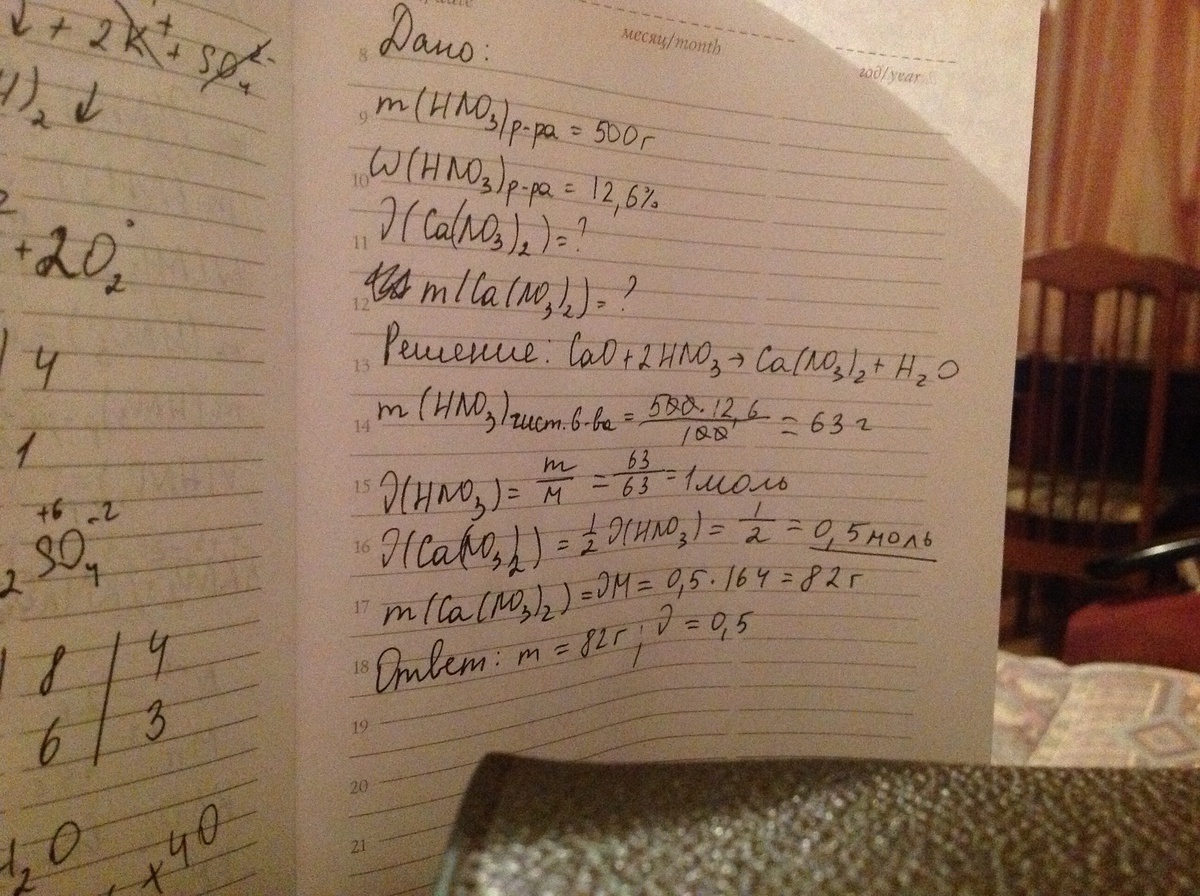 ↓ + 2K⁺ + SO₄²⁻
)₂ ↓
+2O₂
4
1
+6 -2
₂SO₄
8 | 4
6 | 3
H₂O
x40
месяц/month
год/year
8 Дано:
9 m(HNO₃)р-ра = 500г
10 ω(HNO₃)р-ра = 12,6%
11 ν(Ca(NO₃)₂) = ?
12 m(Ca(NO₃)₂) = ?
13 Решение: CaO + 2HNO₃ → Ca(NO₃)₂ + H₂O
14 m(HNO₃)чист.в-ва = 500·12,6/100 = 63г
15 ν(HNO₃) = m/M = 63/63 = 1 моль
16 ν(Ca(NO₃)₂) = 1/2 ν(HNO₃) = 1/2 = 0,5 моль
17 m(Ca(NO₃)₂) = νM = 0,5·164 = 82г
18 Ответ: m = 82г; ν = 0,5
19
20
21